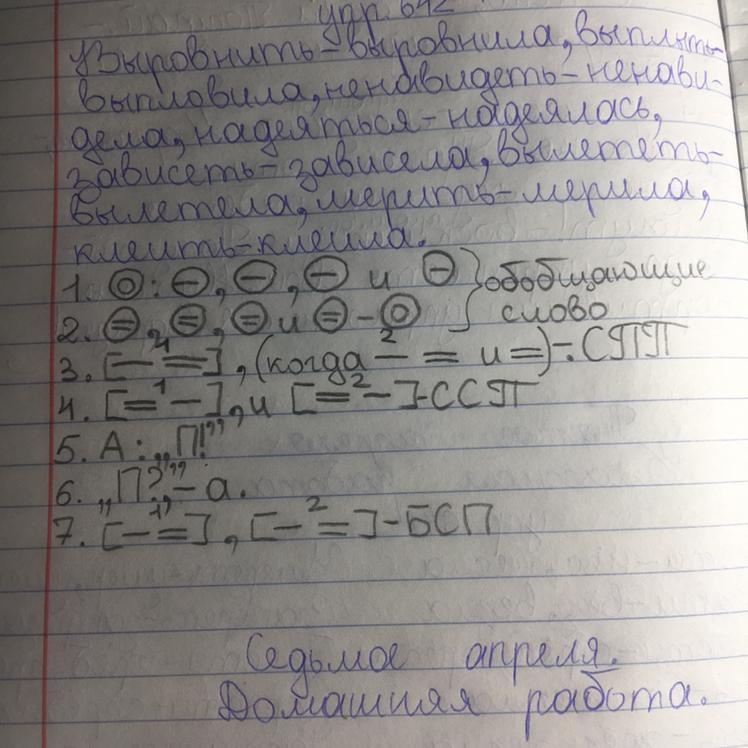 упр. 642
Выровнить-выровнила, выплыть-
выпловила, ненавидеть-ненави-
дела, надеяться-надеялась,
зависеть-зависела, вылететь-
вылетела, мерить-мерила,
клеить-клеила.
1. ⊚: ⊖, ⊖, ⊖ и ⊖ } обобщающие
2. ⊜, ⊜, ⊜ и ⊜ - ⊚ } слово
3. [— 1 =], (когда — 2 = и =) - СПП
4. [= 1 —], и [= 2 —] - ССП
5. А: „П!”
6. „П?” - а.
7. [— 1 =], [— 2 =] - БСП
Седьмое апреля.
Домашняя работа.